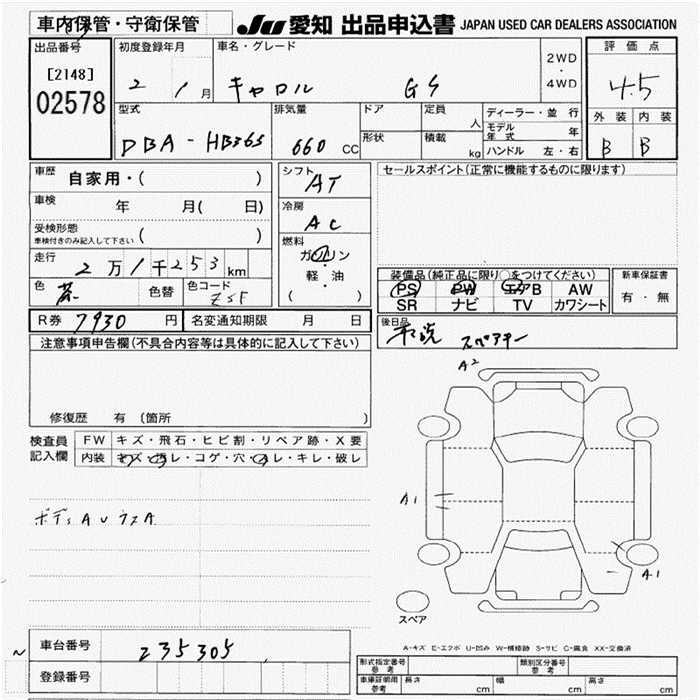 車内保管・守衛保管
JU 愛知 出品申込書 JAPAN USED CAR DEALERS ASSOCIATION
出品番号
[2148]
02578
初度登録年月
2 1月
車名・グレード
キャロル GS
2WD
・
4WD
評価点
4.5
外装 内装
B B
型式
DBA-HB36S
排気量
660 CC
ドア
形状
定員
人
積載
kg
ディーラー・並行
モデル年式 年
ハンドル 左・右
車歴
自家用・( )
車検
年 月( 日)
受検形態
車検付きのみ記入して下さい ( )
走行
2万1千253km
色 色替 色コード
ZSF
シフト
AT
冷房
AC
燃料
ガソリン
・
軽・油
( )
セールスポイント(正常に機能するものに限ります)
装備品(純正品に限り○をつけてください)
PS PW エアB AW
SR ナビ TV カワシート
新車保証書
有・無
R券 7930 円
名変通知期限 月 日
後日品
取説 スペアキー
注意事項申告欄(不具合内容等は具体的に記入して下さい)
修復歴 有 (箇所 )
検査員
記入欄
FW キズ・飛石・ヒビ割・リペア跡・X要
内装 キズ・汚レ・コゲ・穴・スレ・キレ・破レ
A2
A1
A1
スペア
A-キズ E-エクボ U-凹み W-補修跡 S-サビ C-腐食 XX-交換済
車台番号
235305
登録番号
形式指定番号
参考
類別区分番号
参考
車庫証明用
参考
長さ cm
幅 cm
高さ cm